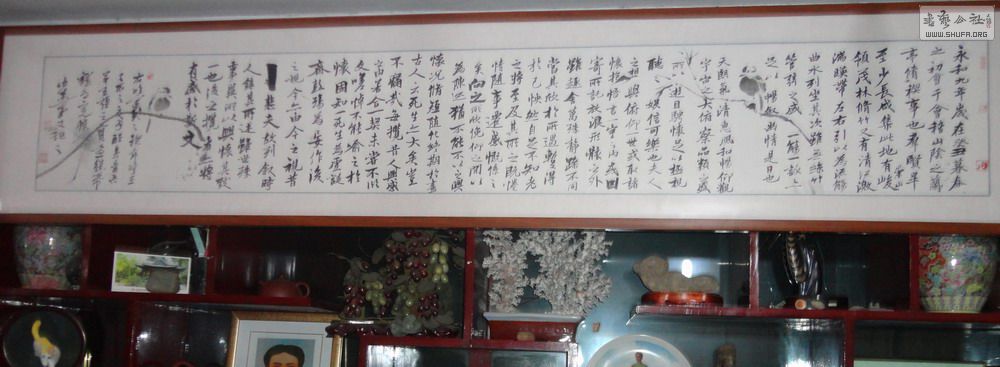 永和九年歲在癸丑暮春
之初會于會稽山陰之蘭
亭脩禊事也羣賢畢
至少長咸集此地有崇山峻
領茂林脩竹又有清流激
湍暎帶左右引以為流觴
曲水列坐其次雖無絲竹
管弦之盛一觴一詠亦
足以暢敘幽情是日也
天朗氣清惠風和暢仰觀
宇宙之大俯察品類之盛
所以遊目騁懷足以極視
聽之娛信可樂也夫人
之相與俯仰一世或取諸
懷抱悟言一室之內或因
寄所託放浪形骸之外
雖趣舍萬殊靜躁不同
當其欣於所遇暫得
於己怏然自足不知老
之將至及其所之既惓
情隨事遷感慨係之
矣向之所欣俛仰之間以
為陳迹猶不能不以之興
懷況脩短隨化終期於盡
古人云死生亦大矣豈
不痛哉每攬昔人興感
之由若合一契未嘗不臨
文嗟悼不能喻之於
懷固知死生為虛誕
齊彭殤為妄作後
之視今亦由今之視昔
悲夫故列敘時
人錄其所述雖世殊
事異所以興懷其致
一也後之攬者亦將
有感於斯文
書藝公社
WWW.SHUFA.ORG